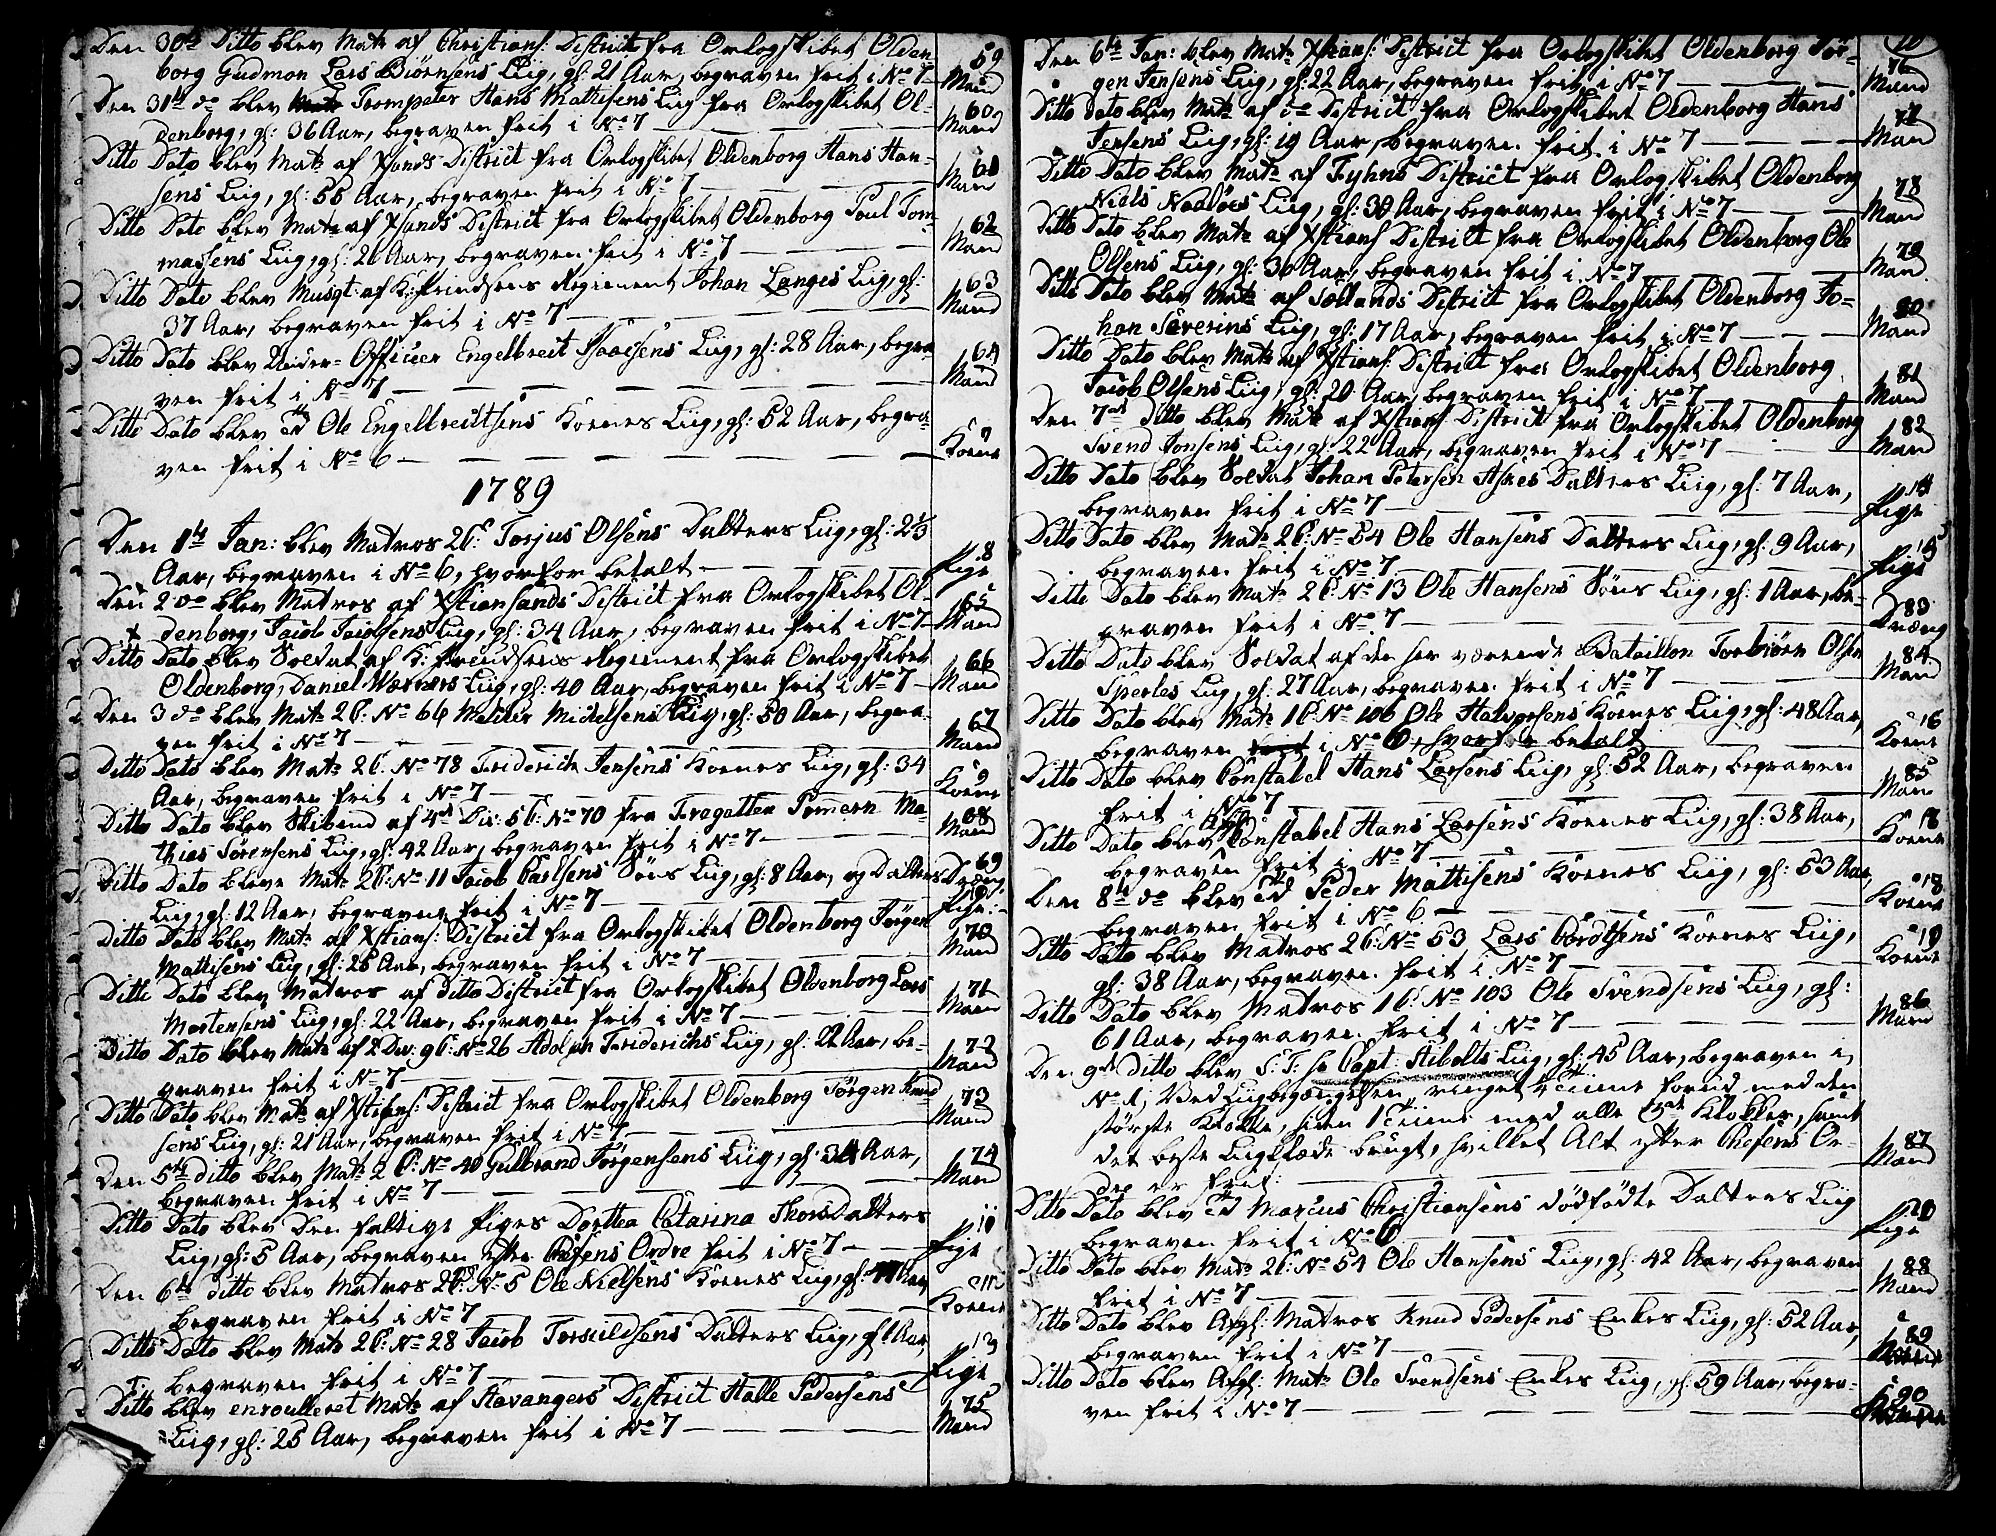 Den 30te Ditto blev Mat: af Christians: District fra Orlogskibet Olden-
borg Gudmon Lars Biörnsens Liig, gl: 21 Aar, begraven frit i No 7 — 59 Mand
Den 31te do blev Trompeter Hans Mathisens Liig fra Orlogskibet Ol-
denborg, gl: 36 Aar, begraven frit i No 7 — 60 Mand
Ditto Dato blev Mat: af Xsands District fra Orlogskibet Oldenborg Hans Han-
sens Liig, gl: 55 Aar, begraven frit i No 7 — 61 Mand
Ditto Dato blev Mat: af Xsands District fra Orlogskibet Oldenborg Poul Tom-
masens Liig, gl: 20 Aar, begraven frit i No 7 — 62 Mand
Ditto Dato blev Musqt: af K: Prindsens Regiment Johan Langes Liig, gl:
37 Aar, begraven frit i No 7 — 63 Mand
Ditto Dato blev Under-Officeer Engelbreit Isaacsens Liig, gl: 28 Aar, begra-
ven frit i No 7 — 64 Mand
Ditto Dato blev Ole Engelbreidtsens Koenes Liig, gl: 52 Aar, begra-
ven frit i No 6 — 7 Koene
1789
Den 1te Jan: blev Matros 2 C: Torjus Olsens Datters Liig, gl: 2 1/3
Aar, begraven i No 6, hvorfor betalt — 8 Pige
Den 2 do blev Matros af Xstiansands District fra Orlogskibet Ol-
denborg, Jacob Jacobsens Liig, gl: 34 Aar, begraven frit i No 7 — 65 Mand
Ditto Dato blev Soldat af K: Prindsens Regiment fra Orlogskibet
Oldenborg, Daniel Werners Liig, gl: 40 Aar, begraven frit i No 7 — 66 Mand
Den 3 do blev Mat: 2 C: No 66 Michelsens Liig, gl: 50 Aar, begra-
ven frit i No 7 — 67 Mand
Ditto Dato blev Mat: 2 C: No 78 Friderich Jensens Koenes Liig, gl: 34
Aar, begraven frit i No 7 — 9 Koene
Ditto Dato blev Skibmd af 4de Div: 5 C: No 70 fra Fregatten Pomern Ma-
thies Sörensens Liig, gl: 42 Aar, begraven frit i No 7 — 68 Mand
Ditto Dato bleve Mat: 2 C: No 11 Jacob Carlsens Söns Liig, gl: 8 Aar, og Datters 69 Dreng
Liig, gl: 12 Aar, begraven frit i No 7 — Pige
Ditto Dato blev Mat: af Xstians: District fra Orlogskibet Oldenborg Jörgen
Mattisens Liig, gl: 25 Aar, begraven frit i No 7 — 70 Mand
Ditto Dato blev Matros af Ditto District fra Orlogskibet Oldenborg Lars
Mortensens Liig, gl: 22 Aar, begraven frit i No 7 — 71 Mand
Ditto Dato blev Mat: af 2 Div: 9 C: No 26 Adolph Friderichs Liig, gl: 22 Aar, be-
graven frit i No 7 — 72 Mand
Ditto Dato blev Mat: af Xstians: District fra Orlogskibet Oldenborg Jörgen Knud-
sens Liig, gl: 21 Aar, begraven frit i No 7 — 73 Mand
Den 5te ditto blev Mat: 2 C: No 40 Gulbrand Jörgensens Liig, gl: 34 Aar,
begraven frit i No 7 — 74 Mand
Ditto Dato blev Den fattige Piges Dorttea Catarina Thorsdatters
Liig, gl: 5 Aar, begraven efter Chefens Ordre frit i No 7 — Pige
Den 6te ditto blev Matros 2 C: No 5 Ole Nielsens Koenes Liig, gl: Aar,
begraven frit i No 7 — Koene
Ditto Dato blev Mat: 2 C: No 28 Jacob Torkildsens Datters Liig, gl: 1 Aar,
begraven frit i No 7 — 13 Pige
Ditto blev enroulleret Mat: af Stavangers District Halle Pedersens
Liig, gl: 25 Aar, begraven frit i No 7 — 75 Mand
10
Den 6te Jan: blev Mat: Xstians: District fra Orlogskibet Oldenborg Jör-
gen Jensens Liig, gl: 22 Aar, begraven frit i No 7 — 76 Mand
Ditto dato blev Mat: af do District fra Orlogskibet Oldenborg Hans
Jensens Liig, gl: 19 Aar, begraven frit i No 7 — 77 Mand
Ditto Dato blev Mat: af Fyhns District fra Orlogskibet Oldenborg
Niels Liig, gl: 30 Aar, begraven frit i No 7 — 78 Mand
Ditto Dato blev Mat: af Xstians District fra Orlogskibet Oldenborg Ole
Olsens Liig, gl: 36 Aar, begraven frit i No 7 — 79 Mand
Ditto Dato blev Mat: af Sællands District fra Orlogskibet Oldenborg Jo-
han Severins Liig, gl: 17 Aar, begraven frit i No 7 — 80 Mand
Ditto Dato blev Mat: af Xstians: District fra Orlogskibet Oldenborg
Jacob Olsens Liig, gl: 20 Aar, begraven frit i No 7 — 81 Mand
Den 7de ditto blev Mat: af Xstians District fra Orlogskibet Oldenborg
Svend Jonsens Liig, gl: 22 Aar, begraven frit i No 7 — 82 Mand
Ditto Dato blev Soldat Johan Petersen Datters Liig, gl: 7 Aar,
begraven frit i No 7 — 14 Pige
Ditto Dato blev Mat: 2 C: No 54 Ole Hansens Datters Liig, gl: 9 Aar,
begraven frit i No 7 — 15 Pige
Ditto Dato blev Mat: 2 C: No 13 Ole Hansens Söns Liig, gl: 1 Aar, be-
graven frit i No 7 — 83 Dreng
Ditto Dato blev Soldat af den her værende Batallion Torbiörn Olsen
Sperles Liig, gl: 27 Aar, begraven frit i No 7 — 84 Mand
Ditto Dato blev Mat: 1 C: No 106 Ole Halvorsens Koenes Liig, gl: 48 Aar,
begraven frit i No 6, hvorfor betalt — 16 Koene
Ditto Dato blev Constabel Hans Larsens Liig, gl: 52 Aar, begraven
frit i No 7 — 85 Mand
Ditto Dato blev Constabel Hans Larsens Koenes Liig, gl: 38 Aar,
begraven frit i No 7 — Koene
Den 8de do blev Peder Mattisens Koenes Liig, gl: 53 Aar,
begraven frit i No 6 — 18 Koene
Ditto Dato blev Matros 2 C: No 53 Lars Koenes Liig,
gl: 38 Aar, begraven frit i No 7 — 19 Koene
Ditto Dato blev Matros 1 C: No 103 Ole Svendsens Liig, gl:
61 Aar, begraven frit i No 7 — 86 Mand
Den 9de ditto blev S: T: Hr Capt: Stibolts Liig, gl: 45 Aar, begraven i
No 1, Ved Liigbegængelsen ringet 1 Tiime forud med den
störste Klokke, siden 1 Tiime med alle Klokker, samt
det beste Liigklæde brugt, hvilket Alt efter Chefens Or-
dre er frit: — 87 Mand
Ditto Dato blev Marcus Christiansens dödfödte Datters Liig
begraven frit i No 6 — 20 Pige
Ditto Dato blev Mat: 2 C: No 54 Ole Hansens Liig, gl: 42 Aar, begraven
frit i No 7 — 88 Mand
Ditto Dato blev Afgl: Matros Knud Pedersens Enkes Liig, gl: 52 Aar,
begraven frit i No 7 — 89
Ditto Dato blev Afgl: Mat: Ole Svendsens Enkes Liig, gl: 59 Aar, begra-
ven frit i No 7 — 90